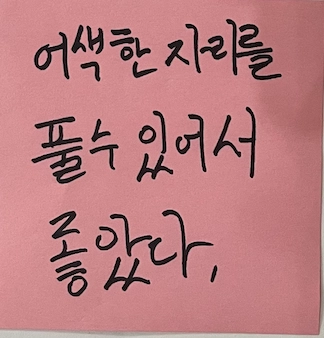 어색한 자리를
풀수 있어서
좋았다,